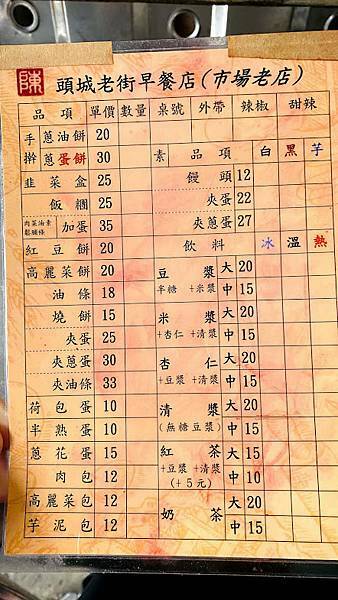 陳 頭城老街早餐店(市場老店)
品項 單價 數量 桌號 外帶 辣椒 甜辣
手擀 蔥油餅 20
蔥蛋餅 30
韭菜盒 25
飯糰 25
加蛋 35
紅豆餅 20
高麗菜餅 20
油條 18
燒餅 15
夾蛋 25
夾蔥蛋 30
夾油條 33
荷包蛋 10
半熟蛋 10
蔥花蛋 15
肉包 12
高麗菜包 12
芋泥包 12
素 品項 白 黑 芋
饅頭 12
夾蛋 22
夾蔥蛋 27
飲料 冰 溫 熱
豆漿 大 20
半糖 +米漿 中 15
米漿 大 20
+杏仁 +清漿 中 15
杏仁 大 20
+豆漿 +清漿 中 15
清漿 大 20
(無糖豆漿) 中 15
紅茶 大 20
+豆漿 +清漿
(+5元) 中 15
奶茶 大 20
中 15